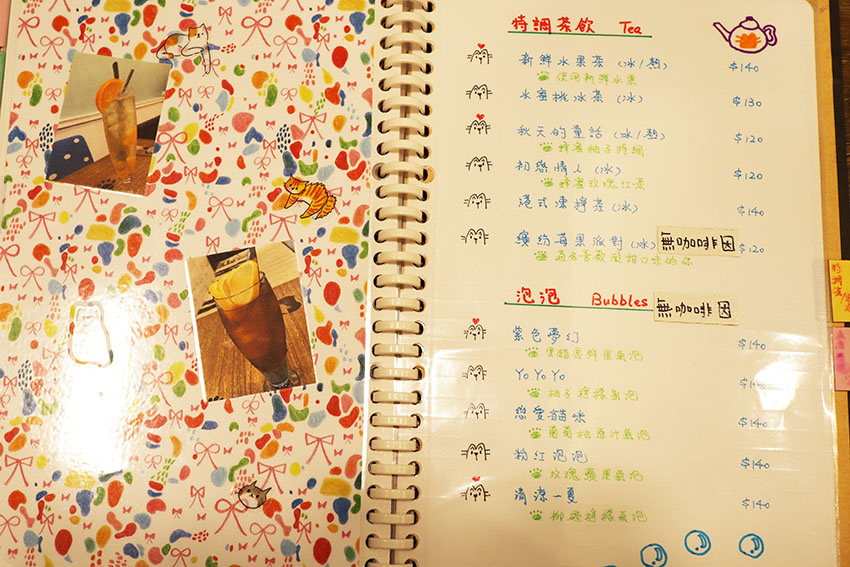 特調茶飲 Tea
新鮮水果茶(冰/熱) $140
使用新鮮水果
水蜜桃冰茶(冰) $130
秋天的童話(冰/熱) $120
蜂蜜柚子特調
初戀情人(冰) $120
蜂蜜玫瑰紅茶
港式凍檸茶(冰) $140
繽紛莓果派對(冰) 無咖啡因 $120
適合喜歡酸甜口味的你
泡泡 Bubbles 無咖啡因
紫色夢幻 $140
黑醋黑鮮果氣泡
YoYoYo $140
柚子檸檬氣泡
戀愛貓咪 $140
葡萄柚原汁氣泡
粉紅泡泡 $140
玫瑰蘋果氣泡
清涼一夏 $140
柳橙檸檬氣泡